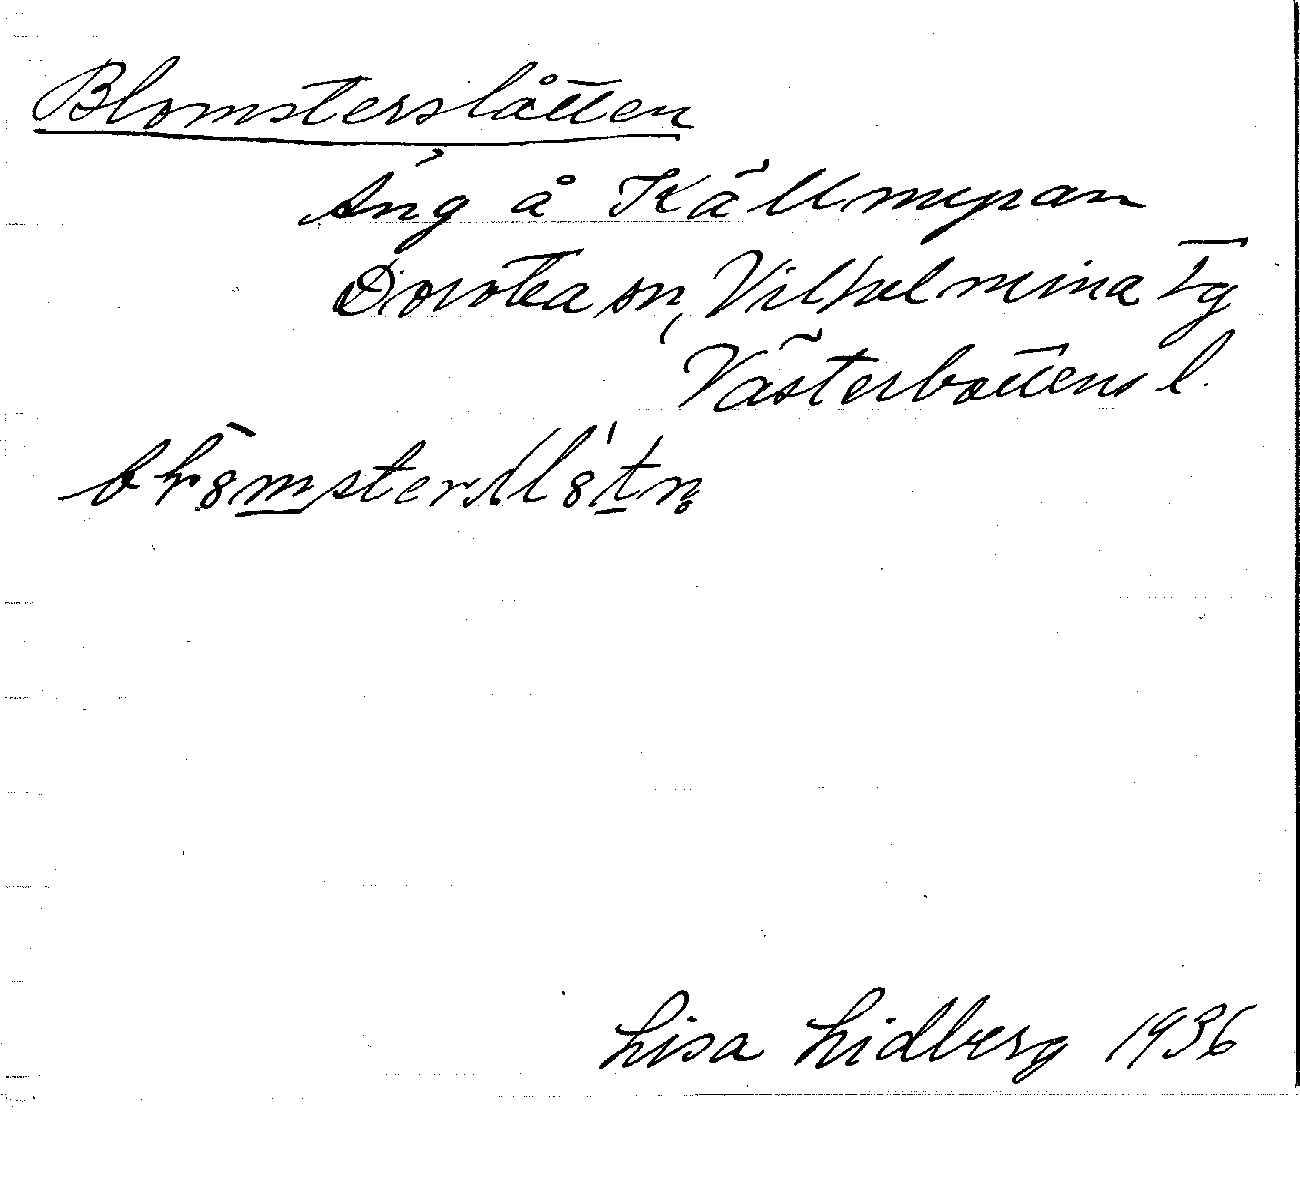 Blomsterslåtten
Äng å Källmyran
Dorotea sn, Vilhelmina tg
Västerbottens l.
Lisa Lidberg 1936